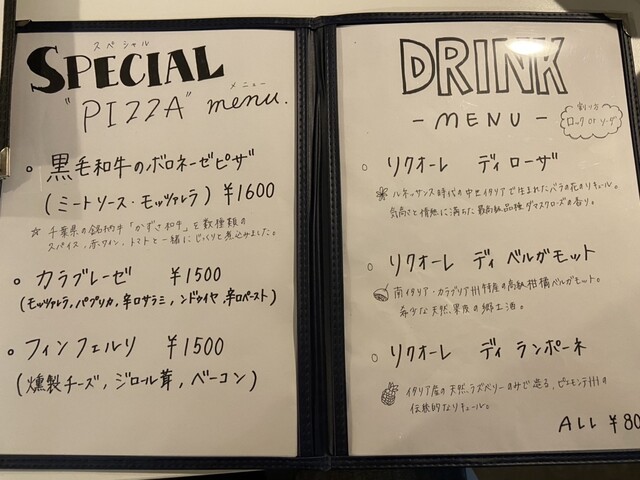 スペシャル
SPECIAL
メニュー
"PIZZA" menu.
○ 黒毛和牛のボロネーゼピザ
(ミートソース・モッツァレラ) ¥1600
☆ 千葉県の銘柄牛「かずさ和牛」を数種類の
スパイス、赤ワイン、トマトと一緒にじっくりと煮込みました。
○ カラブレーゼ ¥1500
(モッツァレラ、パプリカ、辛口サラミ、ンドゥイヤ、辛口ペースト)
○ フィンフェルリ ¥1500
(燻製チーズ、ジロール茸、ベーコン)
DRINK
- MENU -
割り方
ロック or ソーダ
○ リクオーレ ディ ローザ
ルネッサンス時代の中世イタリアで生まれたバラの花のリキュール。
気高さと情熱に満ちた最高級品種ダマスクローズの香り。
○ リクオーレ ディ ベルガモット
南イタリア・カラブリア州特産の高級柑橘ベルガモット。
希少な天然果皮の郷土酒。
○ リクオーレ ディ ランポーネ
イタリア産の天然ラズベリーのみで造る、ピエモンテ州の
伝統的なリキュール。
ALL ¥80